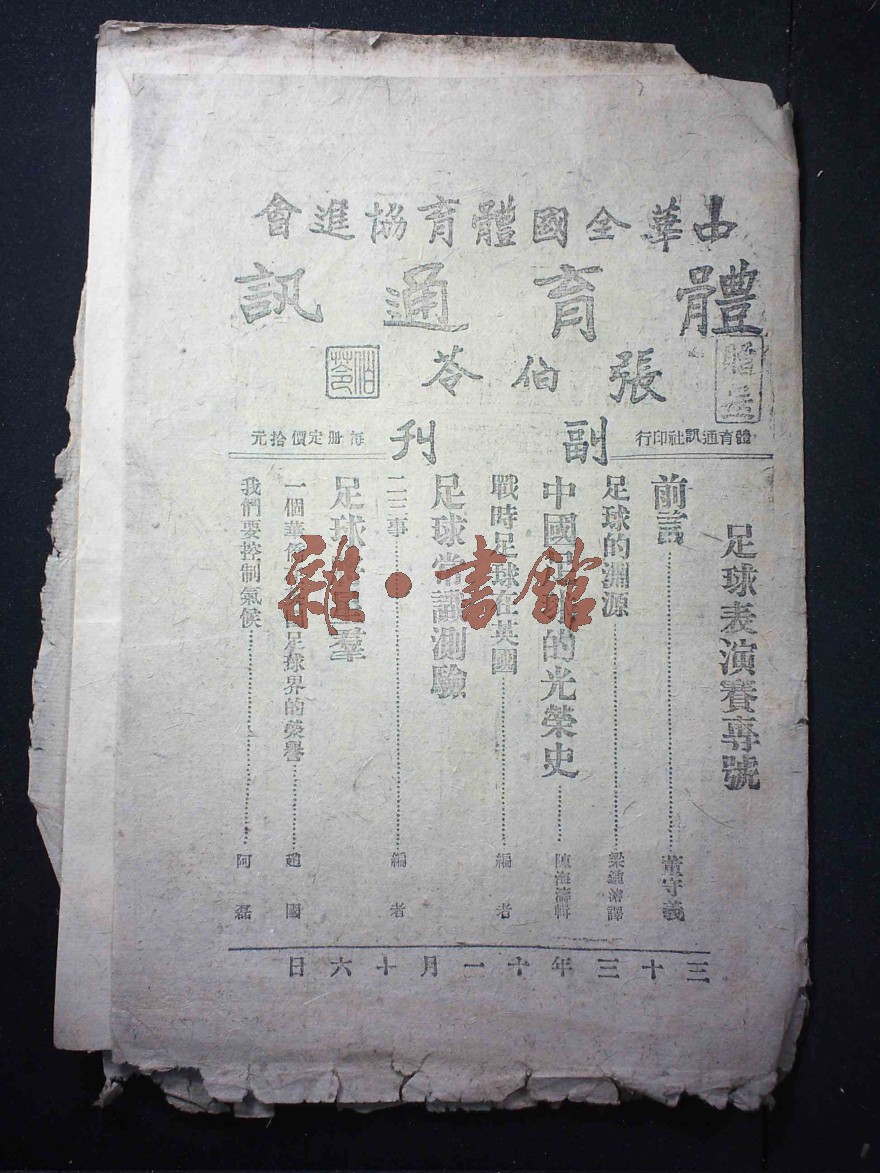 中華全國體育協進會
體育通訊
張伯苓
伯苓
贈送
副刊
體育通訊社印行
每册定價拾元
足球表演賽專號
前言……董守義
足球的淵源……梁鍾濬譯
中國足球的光榮史……陳海濤輯
戰時足球在英國……編者
足球常識測驗
二三事……編者
足球 羣
一個華僑 足球界的榮譽……趙國
我們要控制氣候……阿磊
三十三年十一月十六日
雜·書館